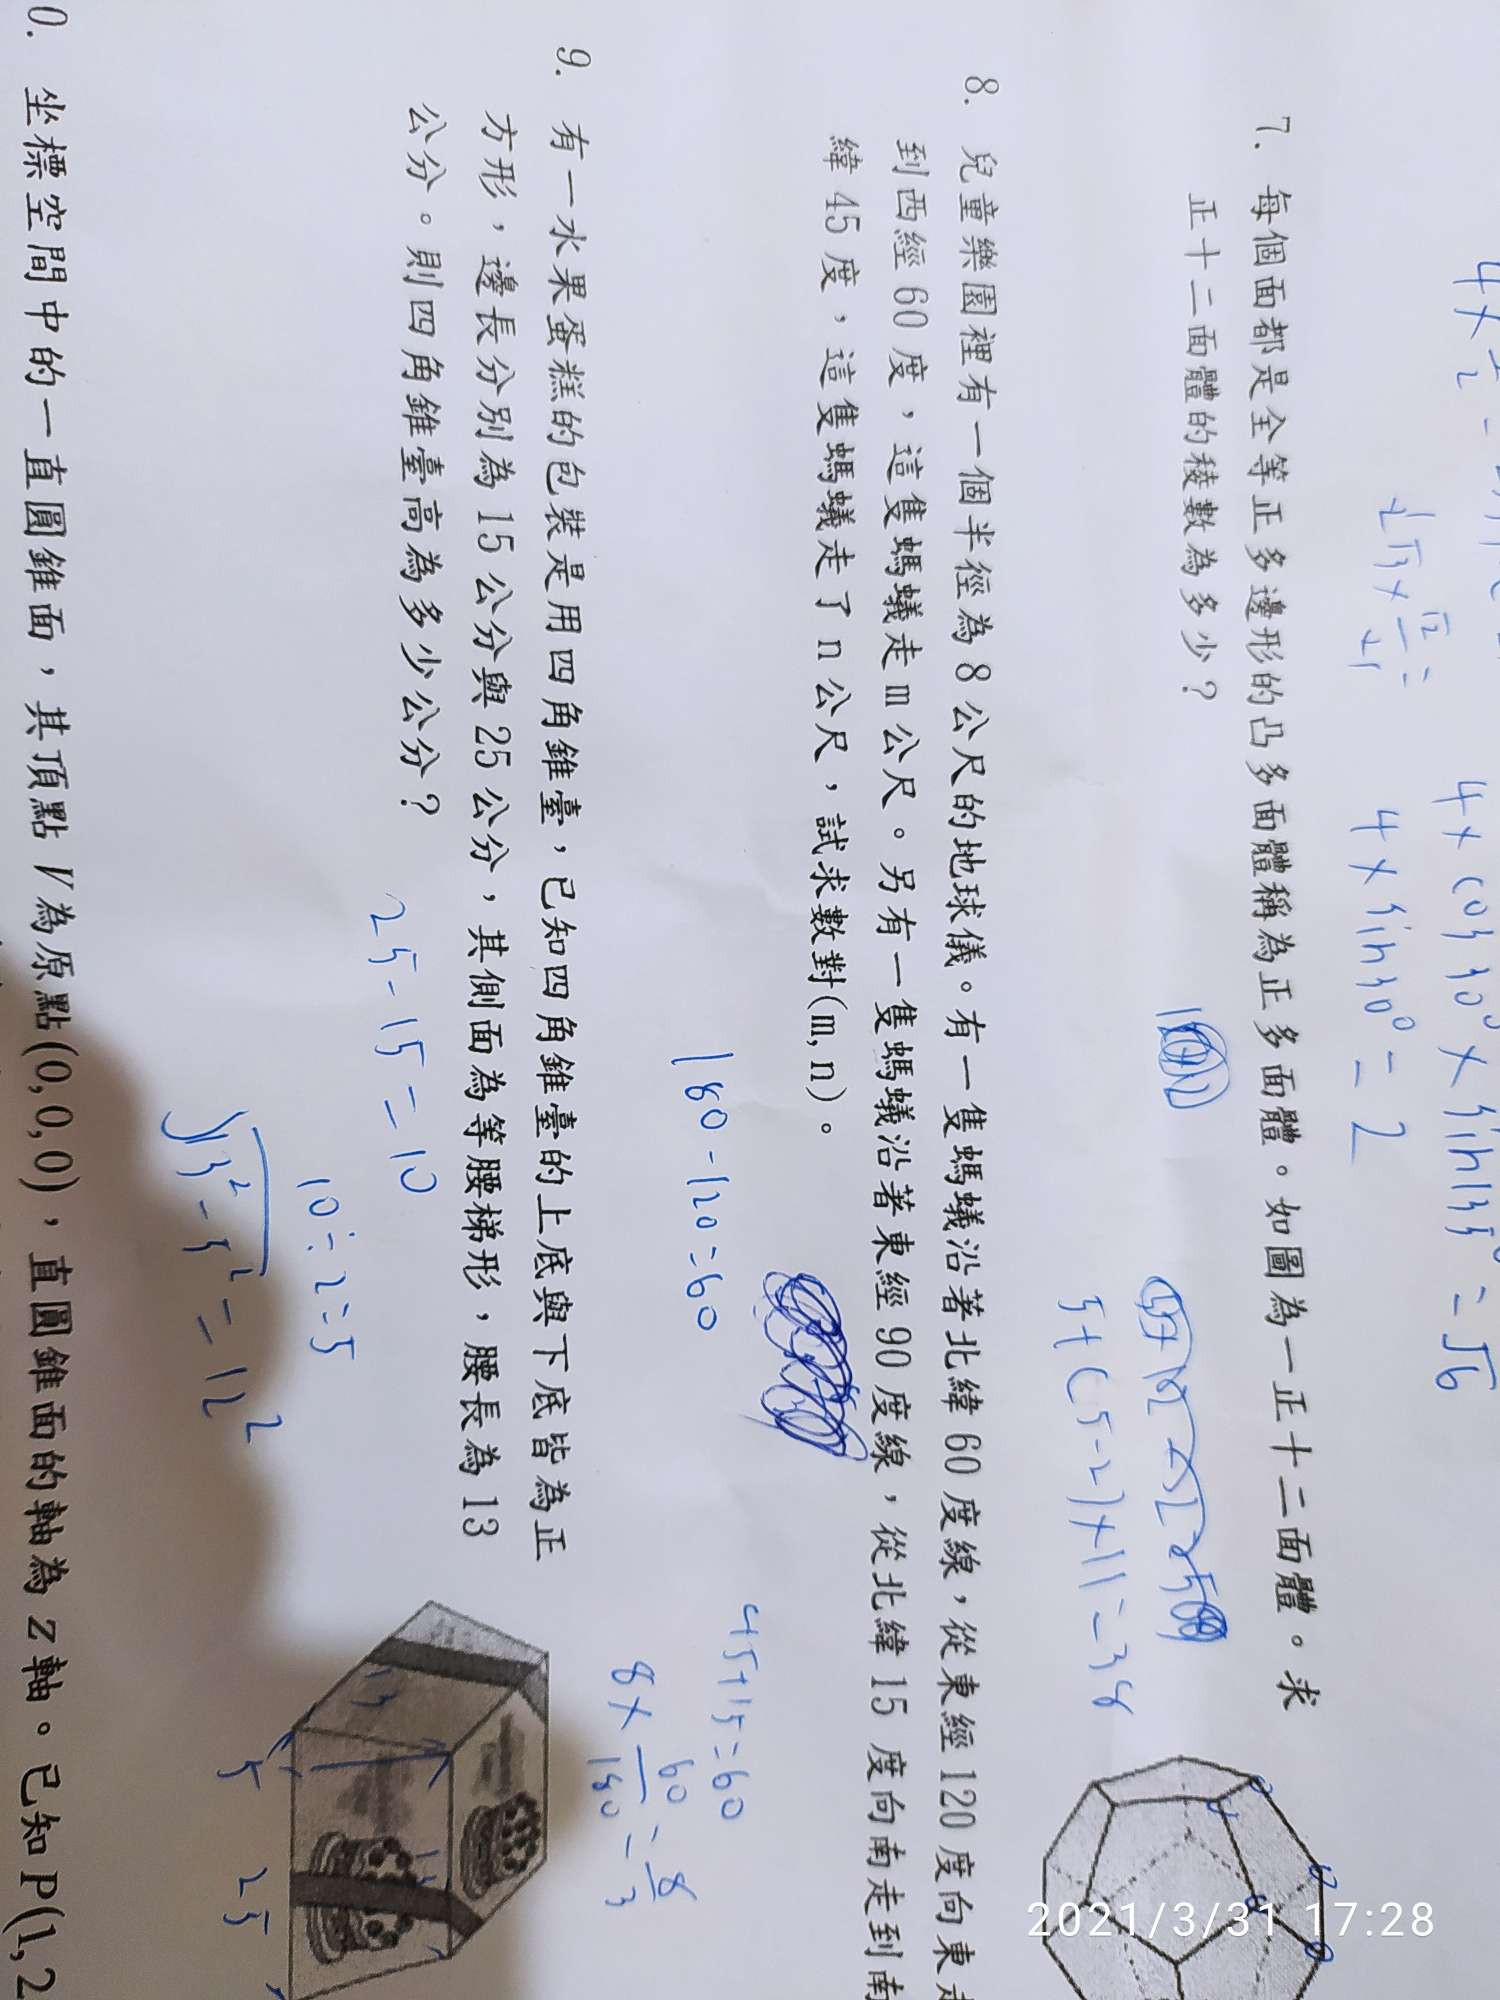 4×cos30°×sin135°=√6
4×sin30°=2
7. 每個面都是全等正多邊形的凸多面體稱為正多面體。如圖為一正十二面體。求
正十二面體的稜數為多少?
5+(5-2)×11=38
8. 兒童樂園裡有一個半徑為8公尺的地球儀。有一隻螞蟻沿著北緯60度線,從東經120度向東走
到西經60度,這隻螞蟻走m公尺。另有一隻螞蟻沿著東經90度線,從北緯15度向南走到南
緯45度,這隻螞蟻走了n公尺,試求數對(m,n)。
180-120=60
45+15=60
8×60/180=8/3
9. 有一水果蛋糕的包裝是用四角錐臺,已知四角錐臺的上底與下底皆為正
方形,邊長分別為15公分與25公分,其側面為等腰梯形,腰長為13
公分。則四角錐臺高為多少公分?
25-15=10
10÷2=5
√13²-5²=12²
13
5
25
0. 坐標空間中的一直圓錐面,其頂點V為原點(0,0,0),直圓錐面的軸為z軸。已知P(1,2
2021/3/31 17:28